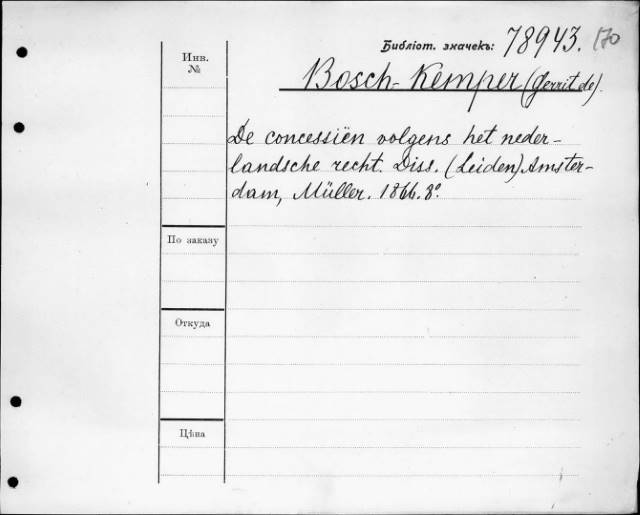 Библіот. значекъ: 78943. 170
Инв. №
Bosch-Kemper (Gerrit de).
De concessiën volgens het neder-
landsche recht. Diss. (Leiden) Amster-
dam, Müller. 1866. 8º.
По заказу
Откуда
Цѣна